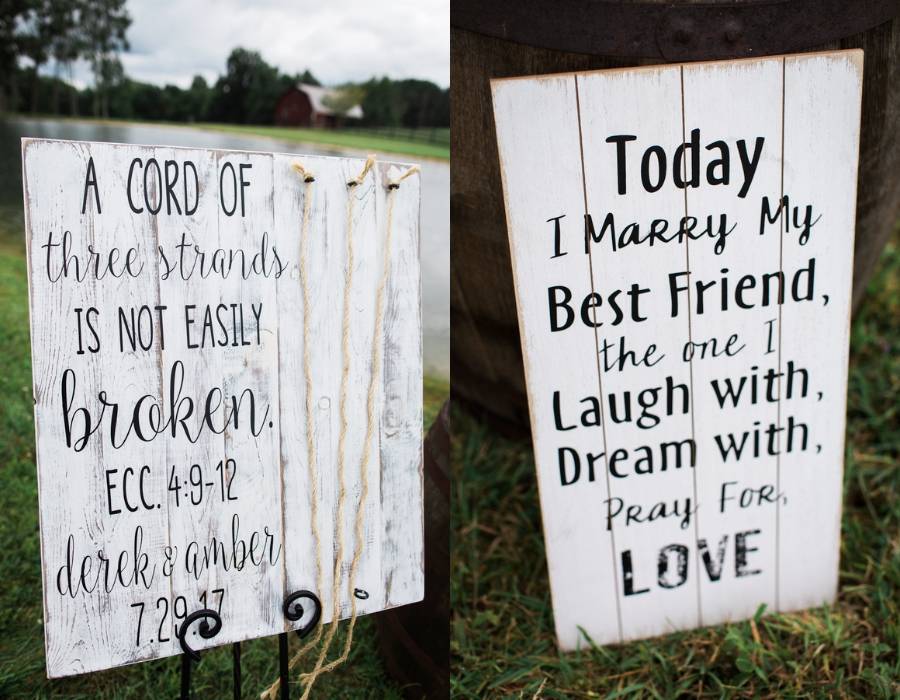 A CORD OF
three strands
IS NOT EASILY
broken.
ECC. 4:9-12
derek & amber
7.29.17
Today
I Marry My
Best Friend,
the one I
Laugh with,
Dream with,
Pray For,
LOVE